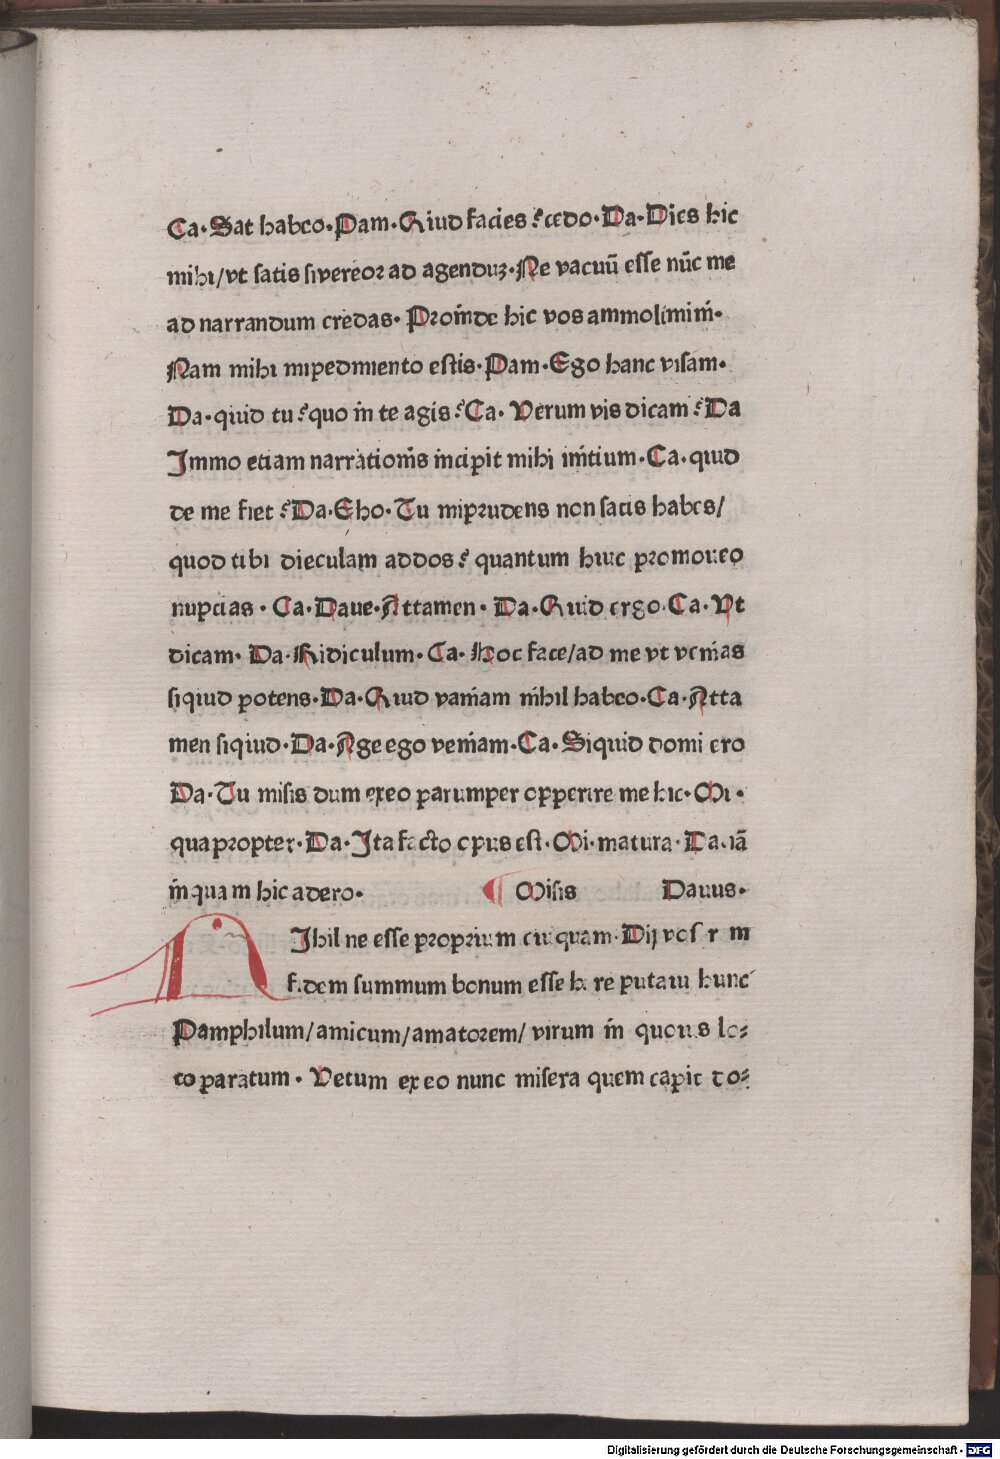 Ca·Sat habeo·Pam·Quid facies ? cedo·Da·Dies hic
mihi/vt satis sit vereor ad agendũ·Ne vacuũ esse nũc me
ad narrandum credas· Proĩde hic vos ammolimiñ·
Nam mihi impedimento estis·Pam·Ego hanc visam·
Da·quid tu ? quo ĩ te agis ? Ca· Verum vis dicam ? Da
Immo etiam narratiõis ĩcipit mihi ĩtium·Ca·quid
de me fiet ? Da·Eho·Tu imprudens non satis habes/
quod tibi dieculam addos ? quantum huic promoueo
nuptias · Ca·Daue·Attamen· Da·Quid ergo·Ca·Vt
dicam· Da·Ridiculum·Ca· Hoc face/ad me vt veñias
siquid potens·Da·Quid vañiam ñihil habeo·Ca·Atta
men siquid·Da·Age ego veñiam·Ca·Siquid domi ero
Da·Tu misis dum exeo parumper opperire me hic·Mi·
quapropter·Da·Ita facto opus est·Mi·matura·Da·iã
ĩquam hic adero· ¶ Misis Dauus·
N Ihil ne esse proprium cuiquam·Dij vos
fidem summum bonum esse here putaui hunc
Pamphilum/amicum/amatorem/virum ĩ quouis lo=
co paratum· Vetum exeo nunc misera quem capit do=
Digitalisierung gefördert durch die Deutsche Forschungsgemeinschaft - DFG